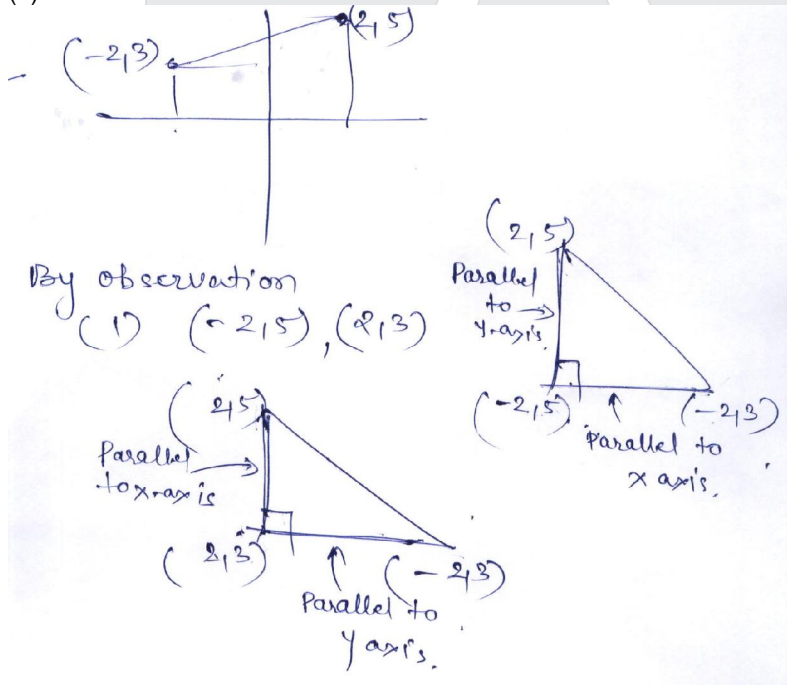 (-2,3)
(2,5)
By observation
(1) (-2,5), (2,3)
(2,5)
Parallel
to
y-axis.
(-2,5)
(-2,3)
Parallel to
x axis.
(2,5)
Parallel
to x-axis
(2,3)
(-2,3)
Parallel to
y axis.